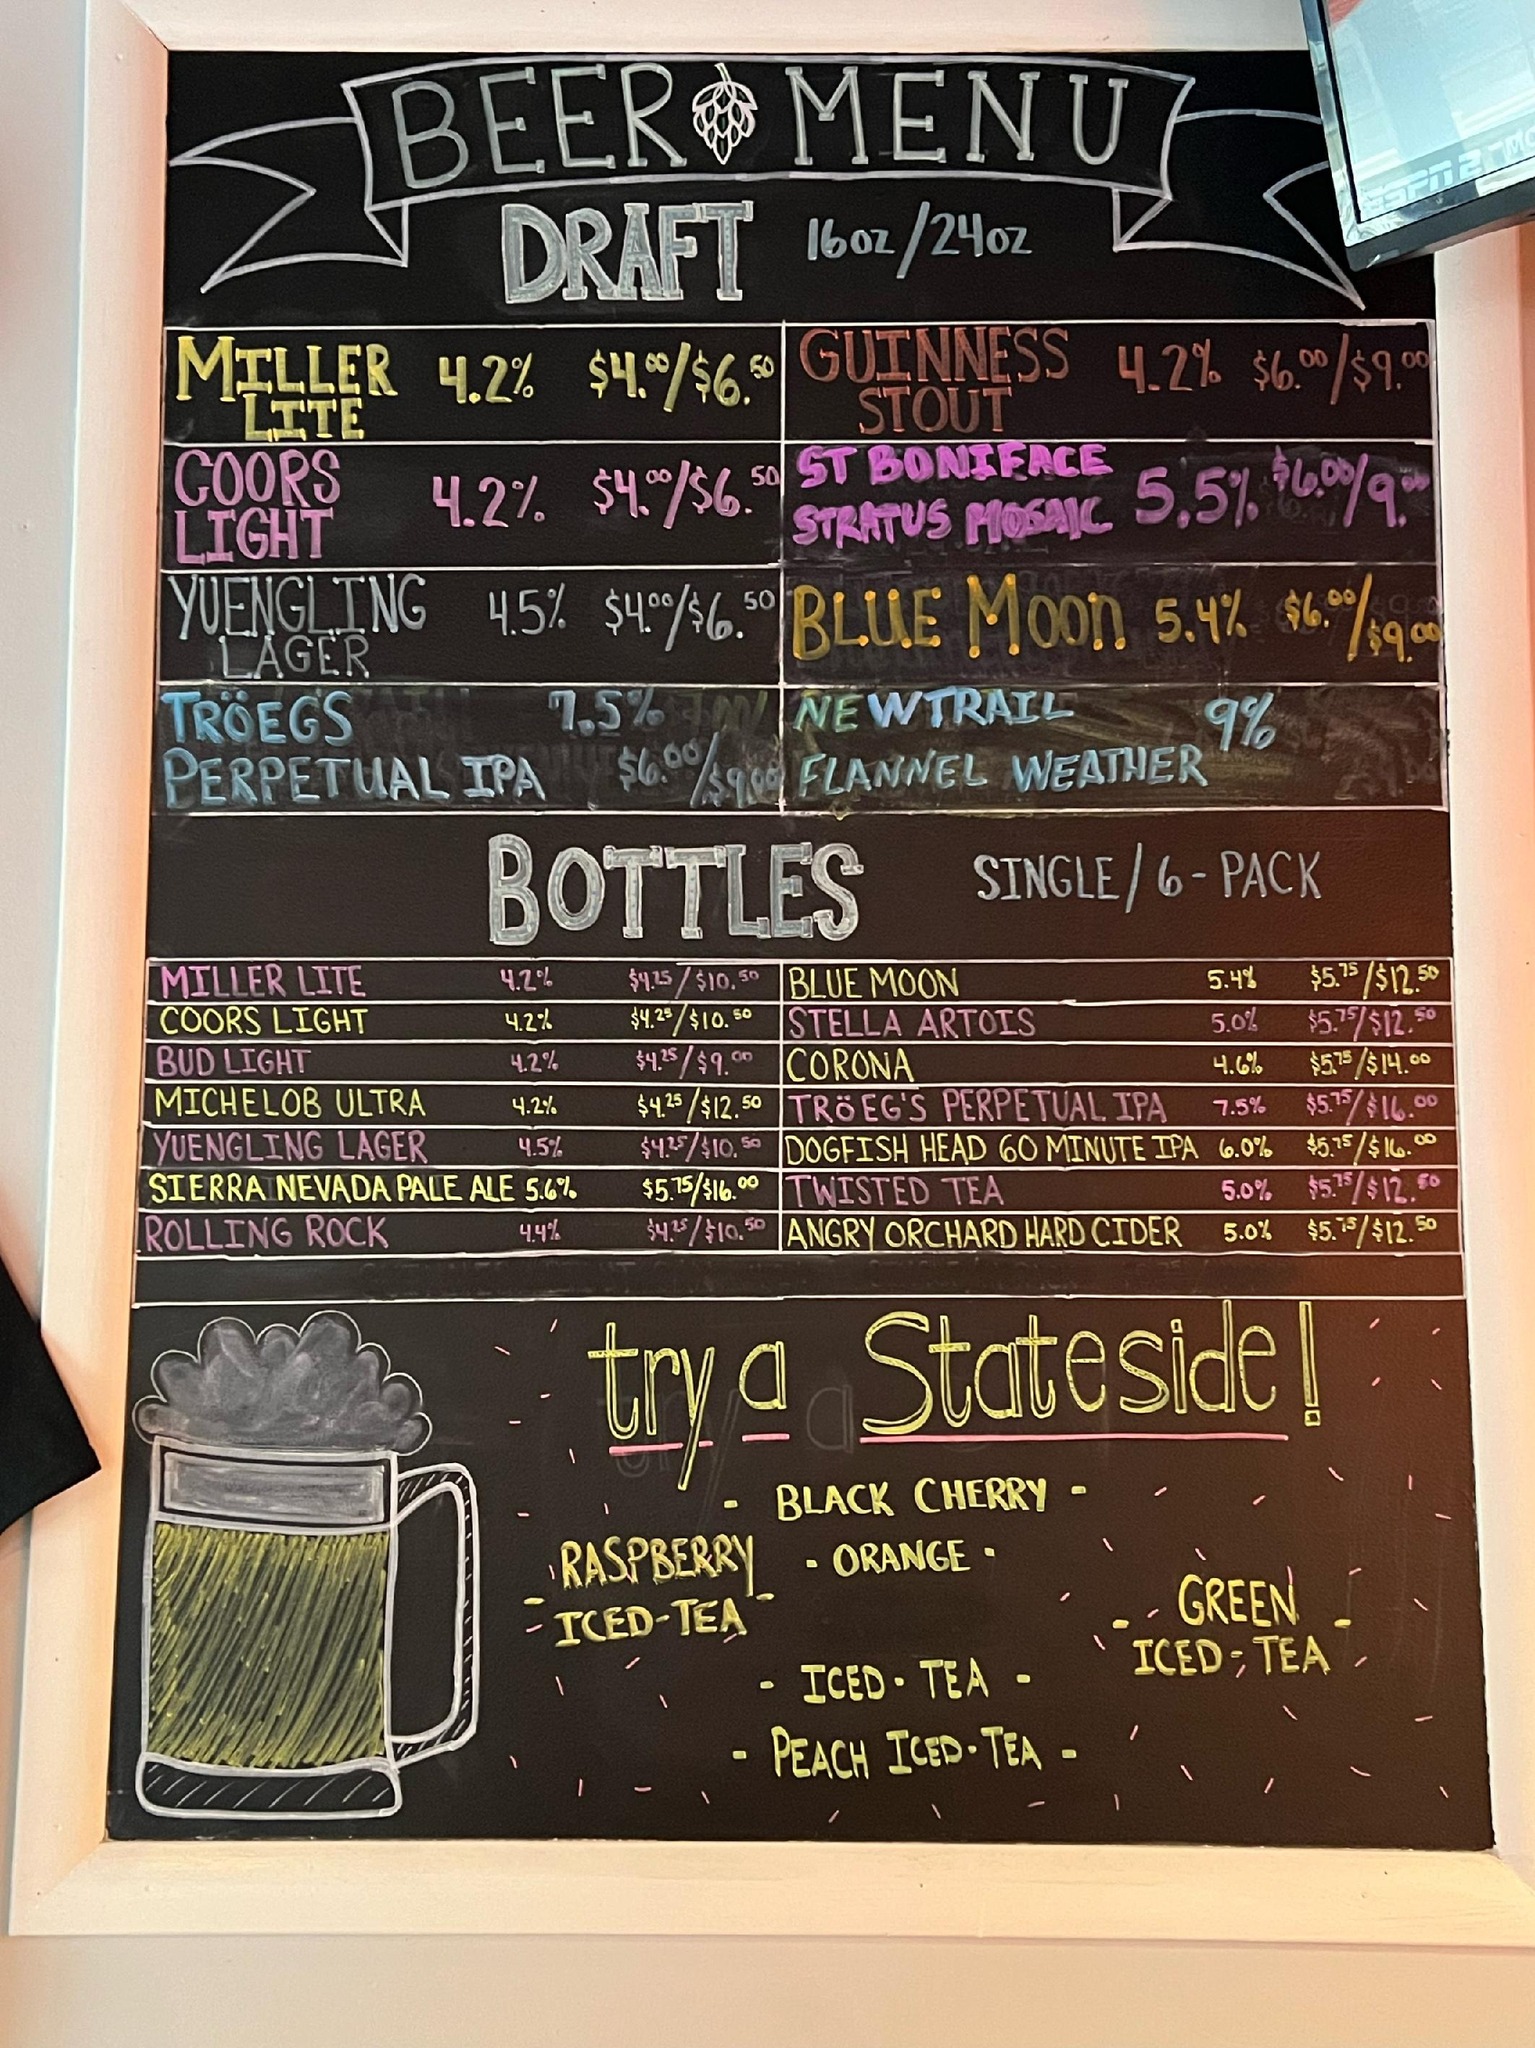 BEER MENU
DRAFT 16oz/24oz
MILLER LITE 4.2% $4.00/$6.50
GUINNESS STOUT 4.2% $6.00/$9.00
COORS LIGHT 4.2% $4.00/$6.50
ST BONIFACE STRATUS MOSAIC 5.5% $6.00/9.00
YUENGLING LAGER 4.5% $4.00/$6.50
BLUE MOON 5.4% $6.00/$9.00
TRÖEGS PERPETUAL IPA 7.5% $6.00/$9.00
NEWTRAIL FLANNEL WEATHER 9%
BOTTLES SINGLE/6-PACK
MILLER LITE 4.2% $4.25/$10.50
BLUE MOON 5.4% $5.75/$12.50
COORS LIGHT 4.2% $4.25/$10.50
STELLA ARTOIS 5.0% $5.75/$12.50
BUD LIGHT 4.2% $4.25/$9.00
CORONA 4.6% $5.75/$14.00
MICHELOB ULTRA 4.2% $4.25/$12.50
TRÖEG'S PERPETUAL IPA 7.5% $5.75/$16.00
YUENGLING LAGER 4.5% $4.25/$10.50
DOGFISH HEAD 60 MINUTE IPA 6.0% $5.75/$16.00
SIERRA NEVADA PALE ALE 5.6% $5.75/$16.00
TWISTED TEA 5.0% $5.75/$12.50
ROLLING ROCK 4.4% $4.25/$10.50
ANGRY ORCHARD HARD CIDER 5.0% $5.75/$12.50
try a Stateside!
- BLACK CHERRY -
- ORANGE -
- RASPBERRY
ICED-TEA -
- GREEN -
ICED-TEA
- ICED-TEA -
- PEACH ICED-TEA -